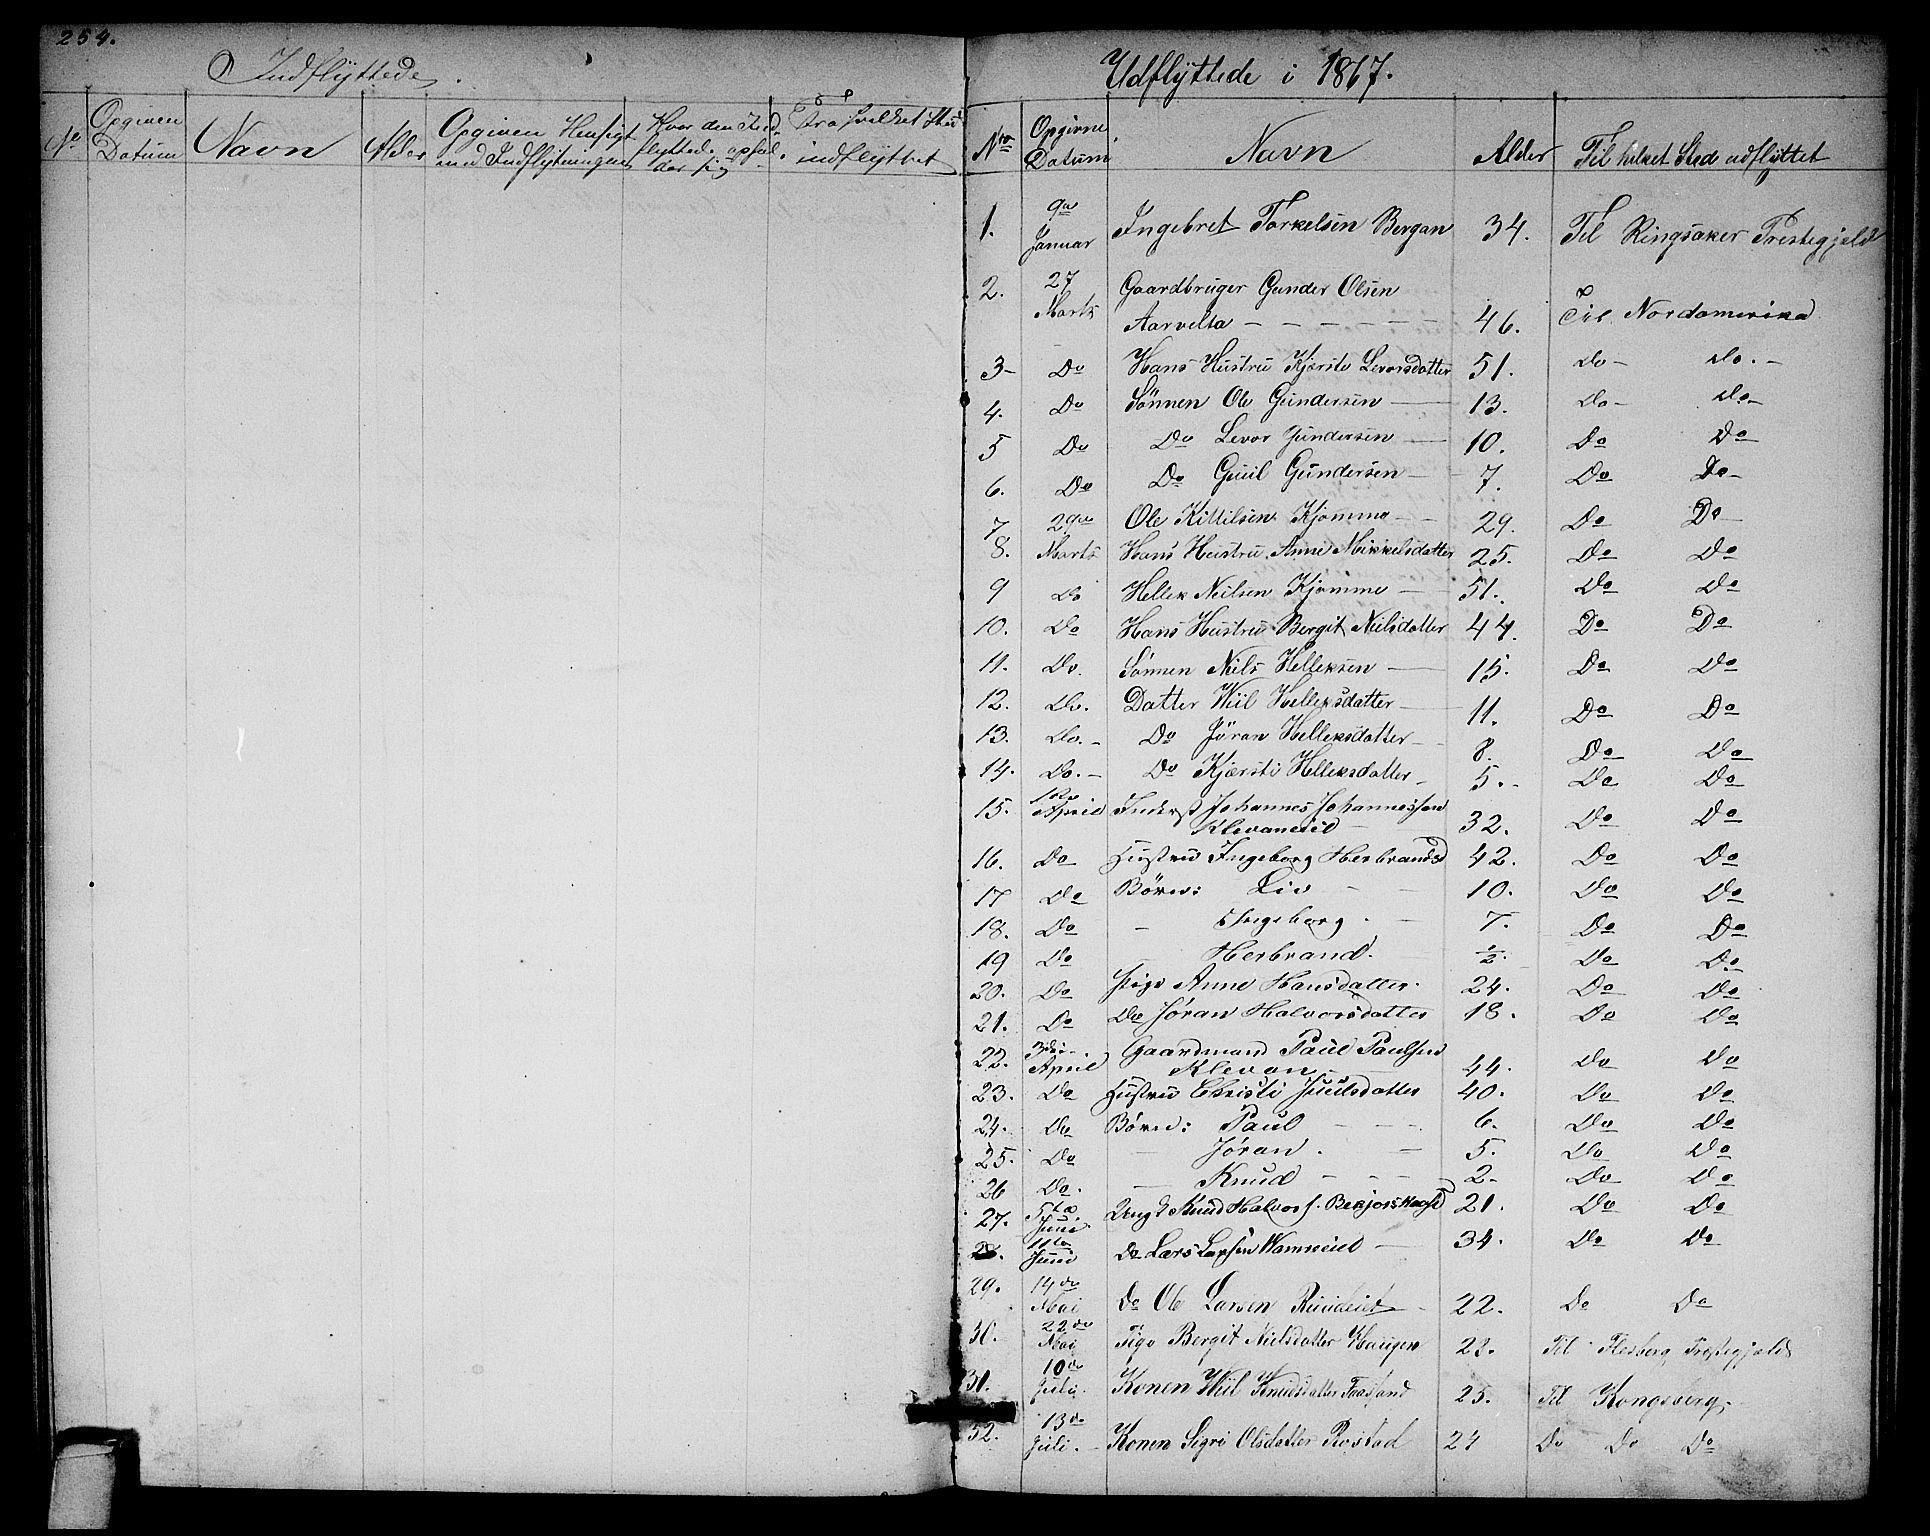 254.
Indflyttede.
No
Opgiven Datum
Navn
Alder
Opgiven Hensigt med Indflytningen
Hvor den Ind-flyttede ophol-der sig
Fra hvilket Sted indflyttet
Udflyttede i 1867.
Nro Opgivne Datum Navn Alder Til hvilket Sted udflyttet
1. 9de Januar Ingebret Torkelsen Bergan 34. Til Ringsaker Prestegjeld
2. 27 Marts Gaardbruger Gunder Olsen
Aarvelta - - - - - - 46. Til Nordamerika
3- Do Hans Hustru Kjersti Levorsdatter 51. do - do. -
4. Do Sønnen Ole Gundersen 13. do - do -
5 Do Do Levor Gundersen 10. Do Do
6. Do Do Guul Gundersen 7. Do Do -
7. 29de Ole Kittilsen Kjømme 29. Do Do
8. Marts Hans Hustru Anne Mikkelsdatter 25. Do Do
9 Do Hellek Neilsen Kjømme 51. Do Do
10. Do Hans Hustru Bergit Nielsdatter 44. Do Do
11. Do. Sønnen Niels Helleksen 15. Do Do
12. Do. Datter Wiil Helleksdatter 11. Do Do
13. Do. - Do Jøran Helleksdatter 8. Do Do
14. Do. - Do Kjersti Helleksdatter 5. - Do Do
15. April Inderst Johannes Johannessen
Klevaneiel 32. Do Do
16. Do Hustru Ingeborg Herbrandsd 42. Do Do
17 Do Børn: Liv - - 10. Do Do
18. Do - Ingeborg. - 7. Do Do
19 Do Herbrand. 1/2. Do Do
20. Do Pige Anne Hansdatter. 24. Do Do
21. Do Do Jøran Halvorsdatter 18. Do Do
22. 3die April Gaardmand Paul Paulsen
Klevan 44. Do Do
23. Do Hustru Christi Juulsdatter 40. Do Do
24. Do Børn: Paul - - - 6. Do Do
25. Do - Jøran. - 5. Do Do
26 Do. - Knud - - - 2- Do Do
27. 5te Juni Ungk Knud Halvors. 21. Do Do
28. 11te Juni Do Lars Larsen - 34. Do Do
29. 14de Mai Do Ole Larsen Rudeiet - 22. Do Do
30. 22de Mai Pige Bergit Nielsdatter Haugen 23. Til Flesberg Prestegjeld
31. 10de Juli. Konen Wiil Knudsdatter 25. Til Kongsberg.
32. 13de Juli. - Konen Sigri Olsdatter Rostad 24 Do Do Do